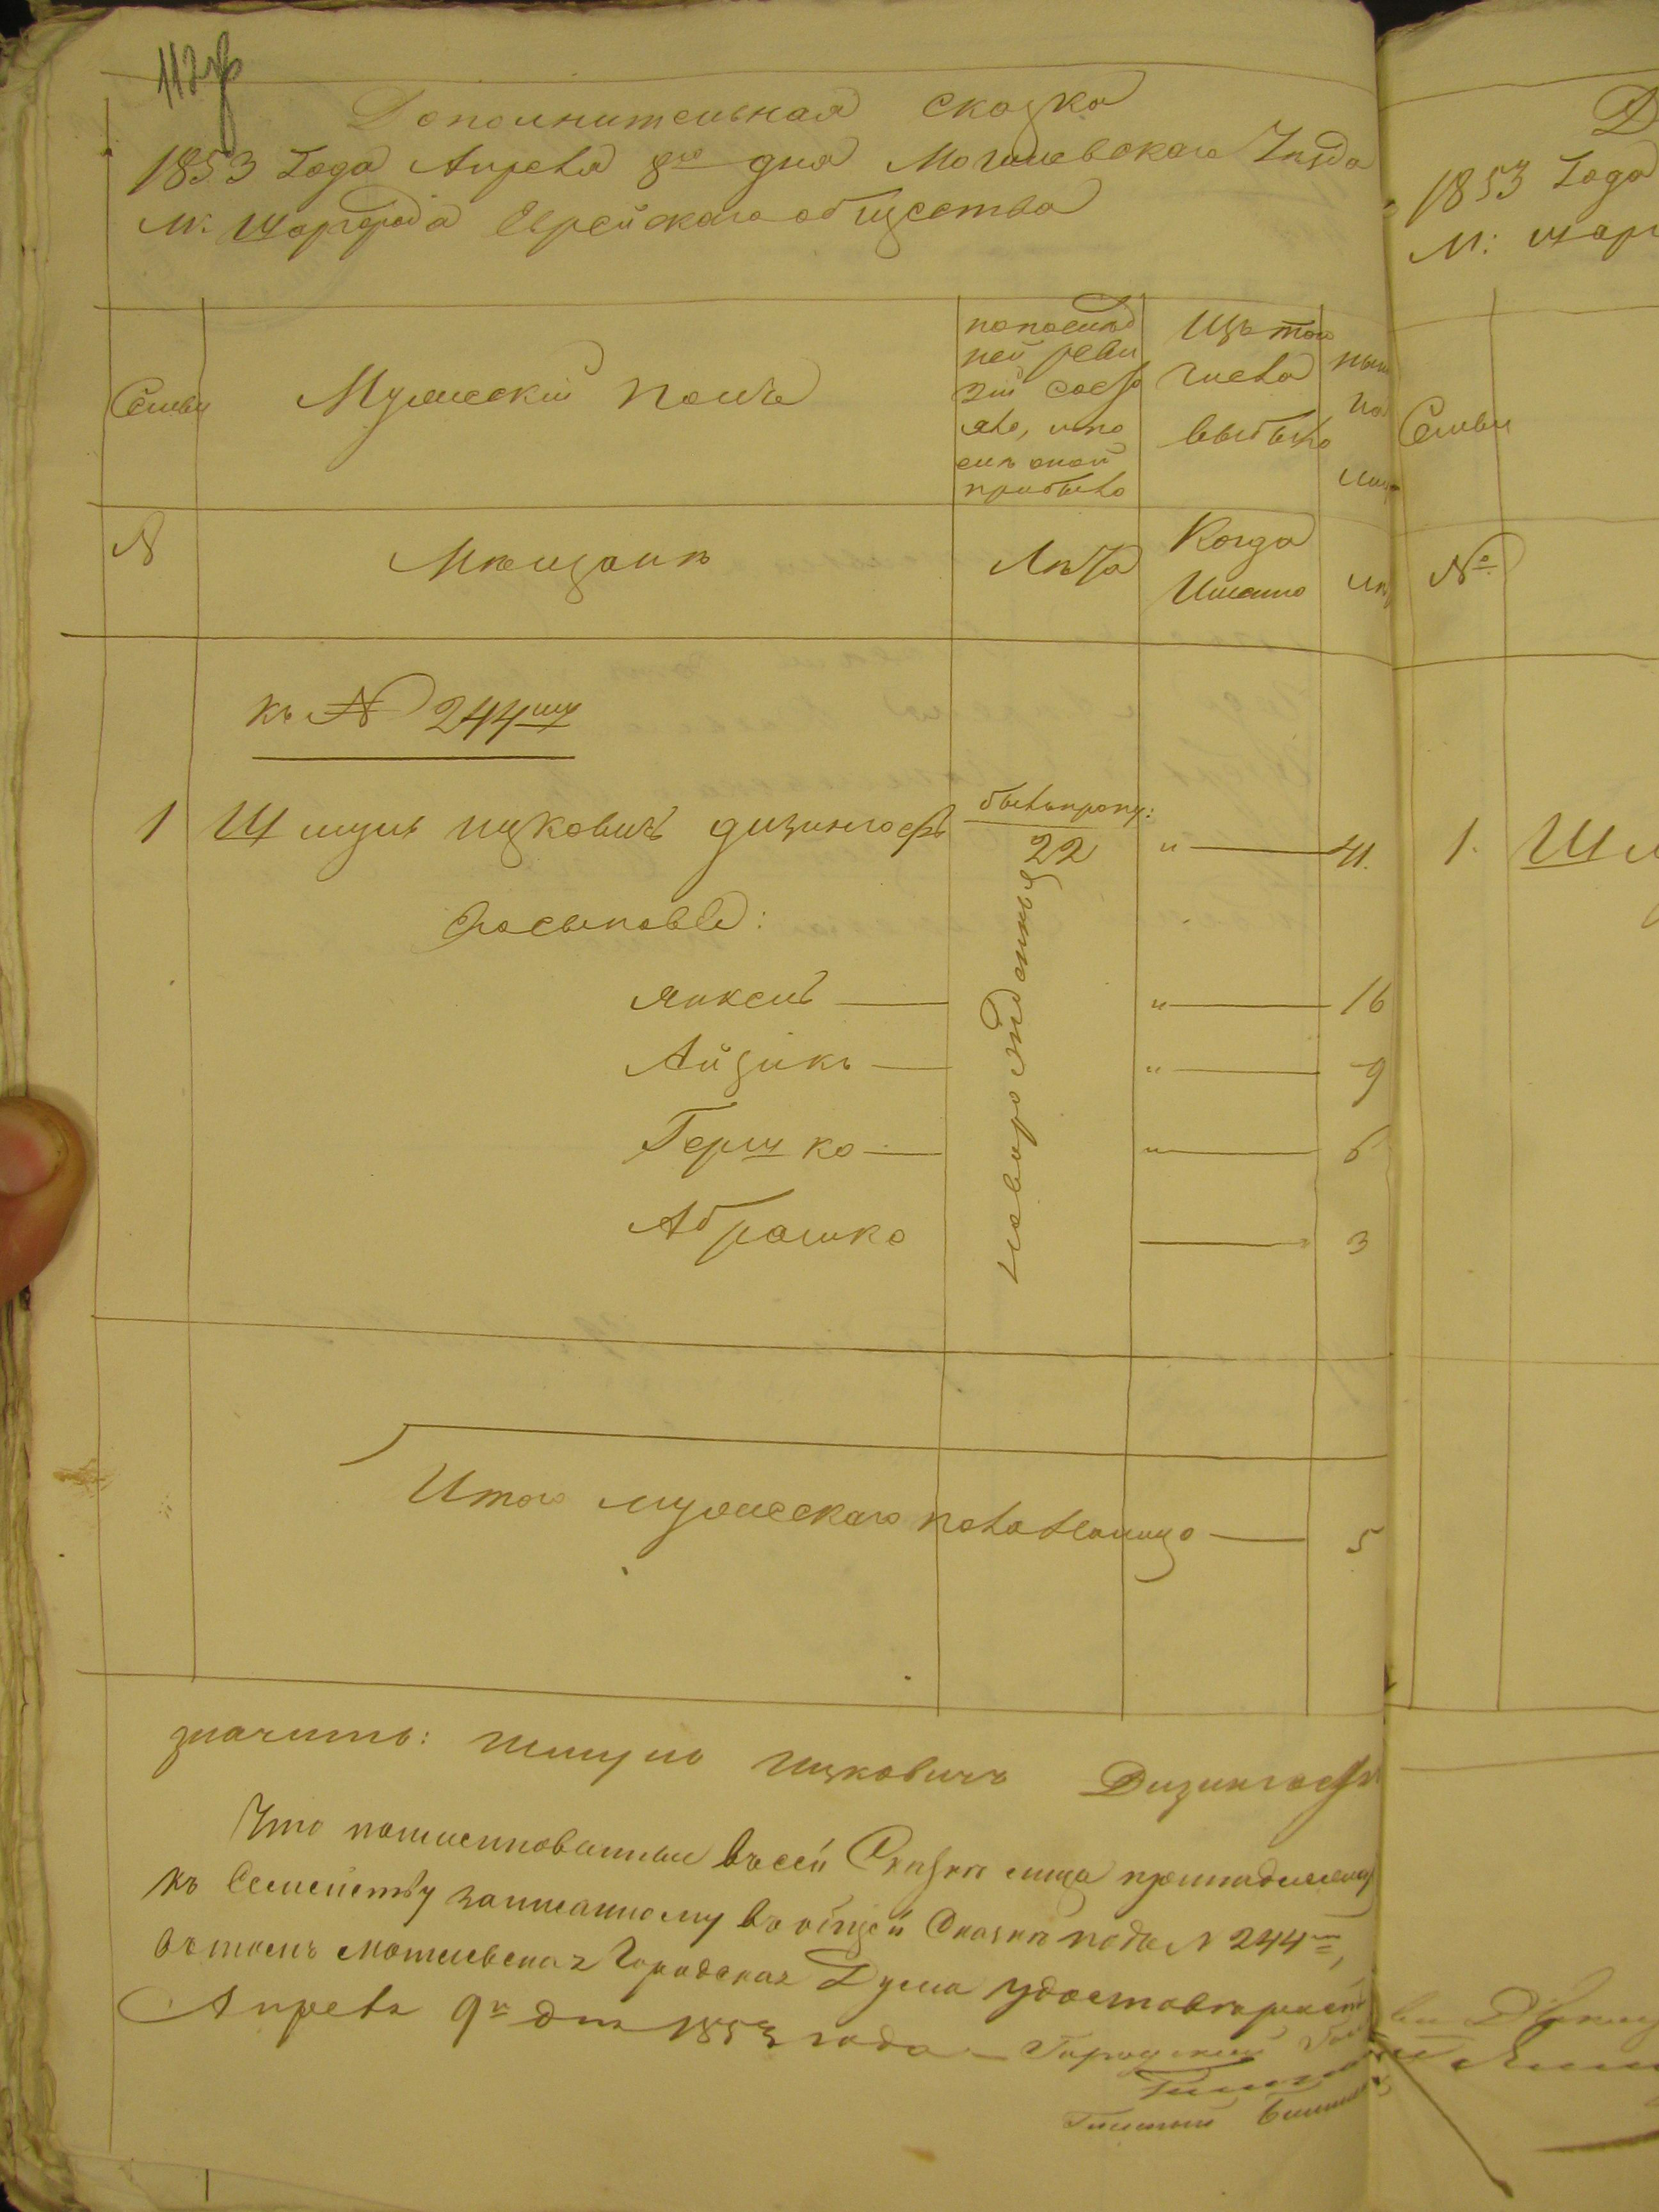 112
Дополнительная сказка
1853 Года Апреля 8го дня Могилевскаго Уезда
М. Шаргорода Еврейскаго общества
Семьи
Мужескій полъ
по послед
ней реви
зіи состо
яло, или
прибыло
Изъ того
числа
выбыло
ныне
№
Мещане
Лета
Когда
Именно
къ № 244му
1 Шмуль Ицковичъ Дизингофъ
былъ пропу:
22 " 41.
Его сыновья:
Янкель " 16
Айзикъ " 9
новорожденные
Гершко " 6
Абрашко 3
Итого мужескаго пола налицо 5
значитъ: Шмуль Ицковичъ Дизингофъ
Что поименованныя въ сей Сказке лица принадлежатъ
къ Семейству записанному въ общей Сказке подъ № 244м,
въ томъ Могилевская Городская Дума удостоверяетъ
Апреля 9го дня 1853 года
Городской
Гласный
Д
1853 Года
М: Шар
Семьи
№
1. Шм